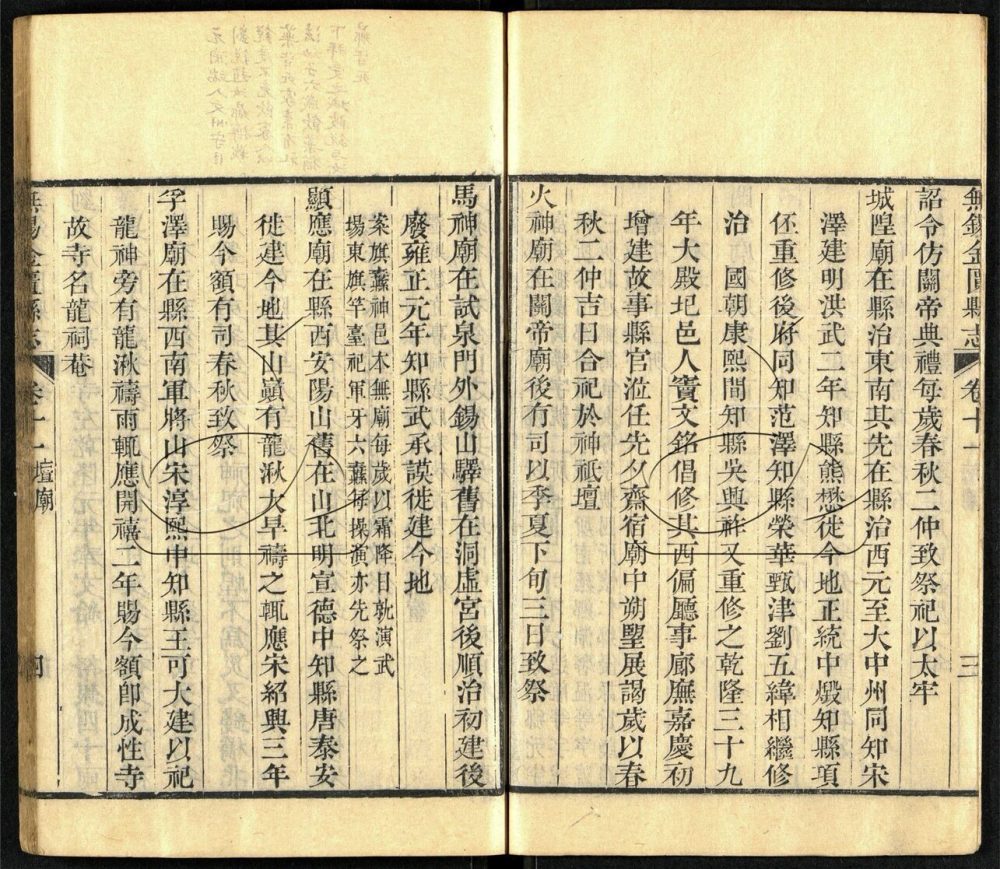 無錫金匱縣志 卷十一 三
詔令仿關帝典禮每歲春秋二仲致祭祀以太牢
城隍廟在縣治東南其先在縣治西元至大中州同知宋
澤建明洪武二年知縣熊懋徙今地正統中燬知縣項
伾重修後府同知范澤知縣榮華甄津劉五緯相繼修
治 國朝康熙間知縣吳興祚又重修之乾隆三十九
年大殿圮邑人竇文銘倡修其西偏廳事廊廡嘉慶初
增建故事縣官涖任先夕齋宿廟中朔望展謁歲以春
秋二仲吉日合祀於神祇壇
火神廟在關帝廟後有司以季夏下旬三日致祭
馬神廟在試泉門外錫山驛舊在洞虛宮後順治初建後
廢雍正元年知縣武承謨徙建今地
案旗纛神邑本無廟每歲以霜降日孰演武
場東旗竿臺祀軍牙六纛每操演亦先祭之
顯應廟在縣西安陽山舊在山北明宣德中知縣唐泰安
徙建今地其山巔有龍湫大旱禱之輒應宋紹興三年
賜今額有司春秋致祭
孚澤廟在縣西南軍將山宋淳熙中知縣王可大建以祀
龍神旁有龍湫禱雨輒應開禧二年賜今額卽成性寺
故寺名龍祠菴
無錫金匱縣志 卷十一 壇廟 四